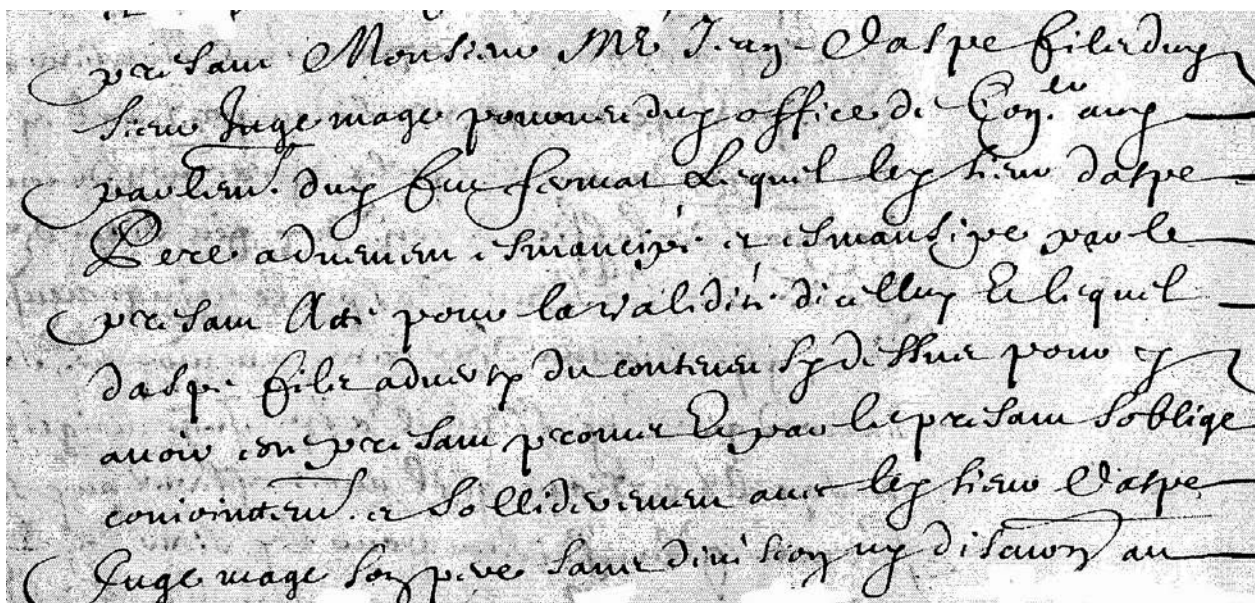 presam Monsieur Mr Jean Daspe filz dud
sieur Juge mage pourveu dud office de Con.er aud
parlem.t dud feu fermat Lequel led sieur daspe
Pere advenem esmancipé et esmansipe par le
presam Acte pour la validité dicelluy Et lequel
daspe filz adverty du contenu sy dessus pour y
avoir esté presam promet Et par le presam soblige
conjointem.t et sollideremen avec led sieur Daspe
Juge mage son pere sans division ny discution au